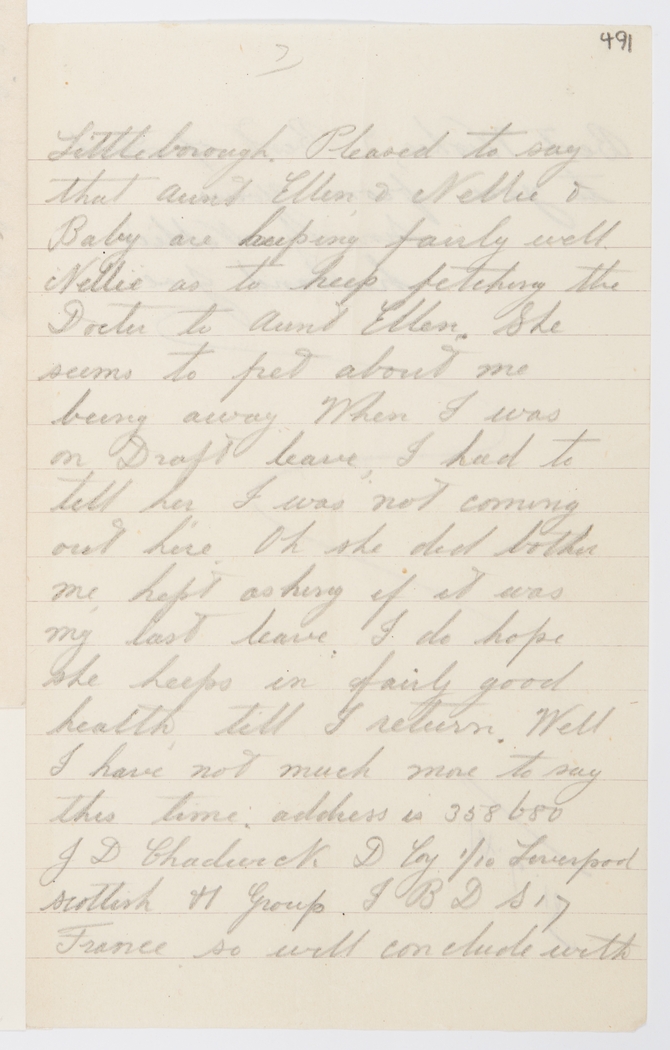 491
Littleborough. Pleased to say
that Aunt Ellen & Nellie &
Baby are keeping fairly well.
Nellie as to keep fetching the
Docter to Aunt Ellen. She
seems to fret about me
being away When I was
on Draft leave, I had to
tell her I was not coming
out here. Oh she did bother
me kept asking if it was
my last leave. I do hope
she keeps in fairly good
health till I return. Well
I have not much more to say
this time. address is 358680
J D Chadwick D Coy 1/10 Liverpool
Scottish H Group I B D S 17
France so will conclude with